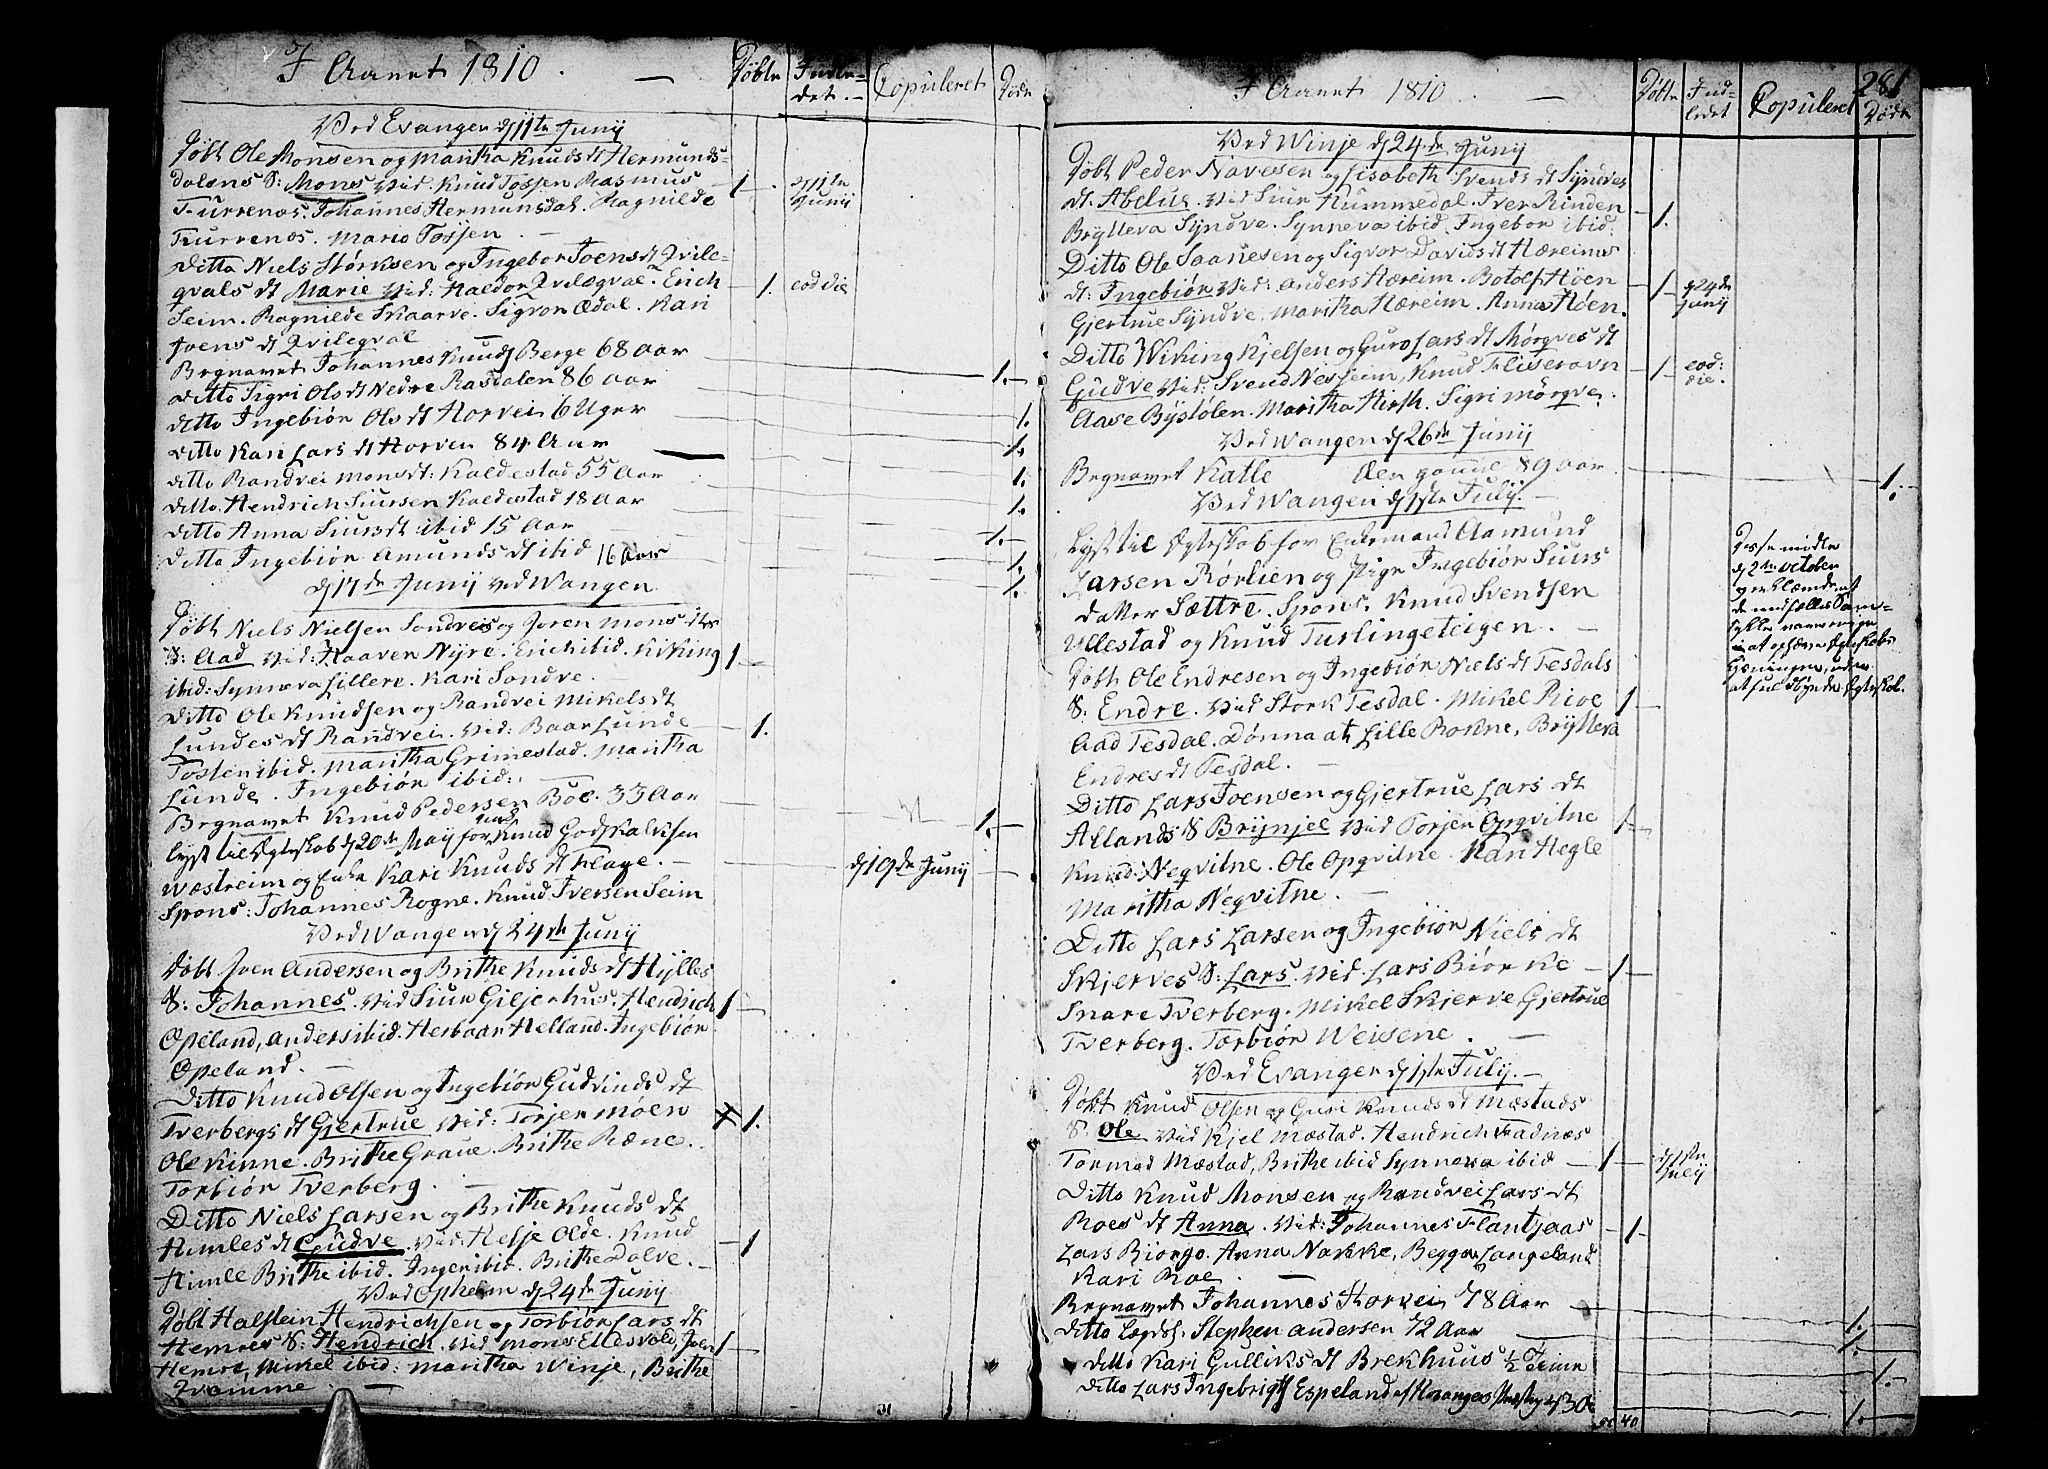 I Aaret 1810. —
Døbte
Indle=
det.
Copuleret
Døde
Ved Evanger d 11te Junij
Døbt Ole Monsen og Maritha Knuds dt Hermunds-
dalens S: Mons Vid. Knud Tossen Rasmus — 1. 11te Junij
Furrenæs. Johannes Hermunsdal. Ragnilde
Furrenæs. Mario Tossen.
Ditto Niels Størksen og Ingebor Joens dt Qvile-
qvals dt Marie Vid: Haldor Qvileqval. Erich — 1. eod die
Seim. Ragnilde Skaarve. Sigvor Ædal. Kari
Joens dt Qvileqval
Begravet Johannes Knuds Berge 68 Aar 1.
ditto Sigri Ols dt Nedre Rasdalen 86 aar 1.
ditto Ingebiør Ols dt Horvei 6 Uger 1.
ditto Kari Lars dt Horvei 84 Aar 1.
ditto Randvei Mons dt: Kaldestad 55 Aar 1.
ditto Hendrich Siursen Kaldestad 18 Aar 1.
ditto Anna Siurs dt ibid 15 Aar 1.
ditto Ingebiør Amunds dt ibid 16 Aar 1.
d 17de Junij ved Wangen
Døbt Niels Nielsen Sondveis og Joren Mons dtr
S: Aad Vid: Haaver Nyre. Erich ibid. Kiking 1 —
ibid: Synneva Lillere. Kari Sondve.
Ditto Ole Knudsen og Randvei Mikels dt
Lundes dt Randvei. Vid: Baar Lunde — 1.
Tosten ibid. Maritha Grimestad. Maritha
Lunde. Ingebiør ibid:
Begravet Knud Pedersen Bøe. 33 Aar 1. —
lyst til Ægteskab d 20de Maij for Knud Godskalksen
Wæstreim og Enke Kari Knuds dt Flage. — d 19de Junij
Spons: Johannes Rogne. Knud Iversen Seim
Ved Wangen d 24de Junij
Døbt Joen Andersen og Brithe Knuds dt Hylles
S: Johannes. Vid Siur Giljerhus. Hendrich 1 —
Opeland, Anders ibid. Herbaar Helland. Ingebiør
Opeland.
Ditto Knud Olsen og Ingebiør Gudvinds dt
Tverbergs dt Gjertrue Vid: Torjer Møen 1.
Ole Kinne. Brithe Graue. Brithe Ræne.
Torbiør Tverberg.
Ditto Niels Larsen og Brithe Knuds dt
Himles dt Gudve. Vid: Helje Olde. Knud — 1
Himle Brithe ibid. Inger ibid. Brithe Dolve. —
Ved Opheim d 24de Junij
Døbt Halstein Hendrichsen og Torbiør Lars dt
Hemres S: Hendrich. Vid Mons Elldsvold, Joen 1 —
Hemre, Mikel ibid: Maritha Winje, Brithe
Tvemme. —
I Aaret 1810. —
Døbte
Ind-
ledet
Copuleret
281
Døde
Ved Winje d 24de Junij
Døbt Peder Navesen og Lisabeth Svends dt Syndves
dt. Abelue. Vid Siur Hummedal. Iver Rinden — 1.
Brytteva Syndve. Synneva ibid. Ingebor ibid.
Ditto Ole Saanesen og Sigvor Davids dt Hæreims
dt: Ingebiør Vid: Anders Hæreim. Botolf Høen — 1 — d 24de Junij
Gjertrue Syndve, Maritha Hæreim. Anna Høen.
Ditto Wiking Kjelsen og Guro Lars dt Mørqves dt
Gudve Vid: Svend Nesheim, Knud Fliseravn — 1 — eod: die.
Aase Bystølen. Maritha Hirth. Sigri Mörqve.
Ved Wangen d 26de Junij
Begravet Katle den gamle 89 aar. 1.
Ved Wangen d 1ste Julij. —
Lyst til Ægteskab for Enkemand Aamund
Larsen Rørlien og Pige Ingebiør Siurs
datter Sættre. Spons. Knud Svendsen
Ullestad og Knud Turlingeteigen. —
Disse mødte
d 2den October
og erklærede at
de med fælles Sam-
tykke vare enige
i at ophæve Ægteskabs
lysningen, uden
at fuldbyrde Ægteskab.
Døbt Ole Endresen og Ingebiør Niels dt Tesdals
S: Endre. Vid Stork Tesdal. Mikel Rioe 1 —
Aad Tesdal. Dønna at Lille Rokne, Brytteva
Endres dt Tesdal. —
Ditto Lars Joensen og Gjertrue Lars dt
Afdands S Brynjel Vid Torjer Opqvitne 1 —
Knud: Neqvitne. Ole Opqvitne. Kari Hegle
Maritha Neqvitne. —
Ditto Lars Larsen og Ingebiør Niels dt
Skjerves S: Lars. Vid Lars Biørke — 1 —
Snare Tverberg. Mikel Skjerve Gjertrue
Tverberg. Torbiør Weisene. —
Ved Evanger d 1ste Julij. —
Døbt Knud Olsen og Guri Knuds dt Mæstads
S: Ole Vid Kjel Mæstad. Hendrich Fadnæs
Tormod Mæstad, Brithe ibid Synneva ibid — 1 — d 1ste Julij
Ditto Knud Monsen og Randvei Lars dt
Roes dt Anna. Vid: Johannes Flantjaas — 1 —
Lars Biorgo. Anna Nakke, Begga Langeland
Kari Roe. —
Begravet Johannes Horvei 78 Aar 1. —
Ditto Lægdsl. Stephen Andersen 72 Aar 1. —
ditto Kari Gulliks dt Brekhuus 1/2 Time 1. —
ditto Lars Ingebrigts Espeland 1. —
40